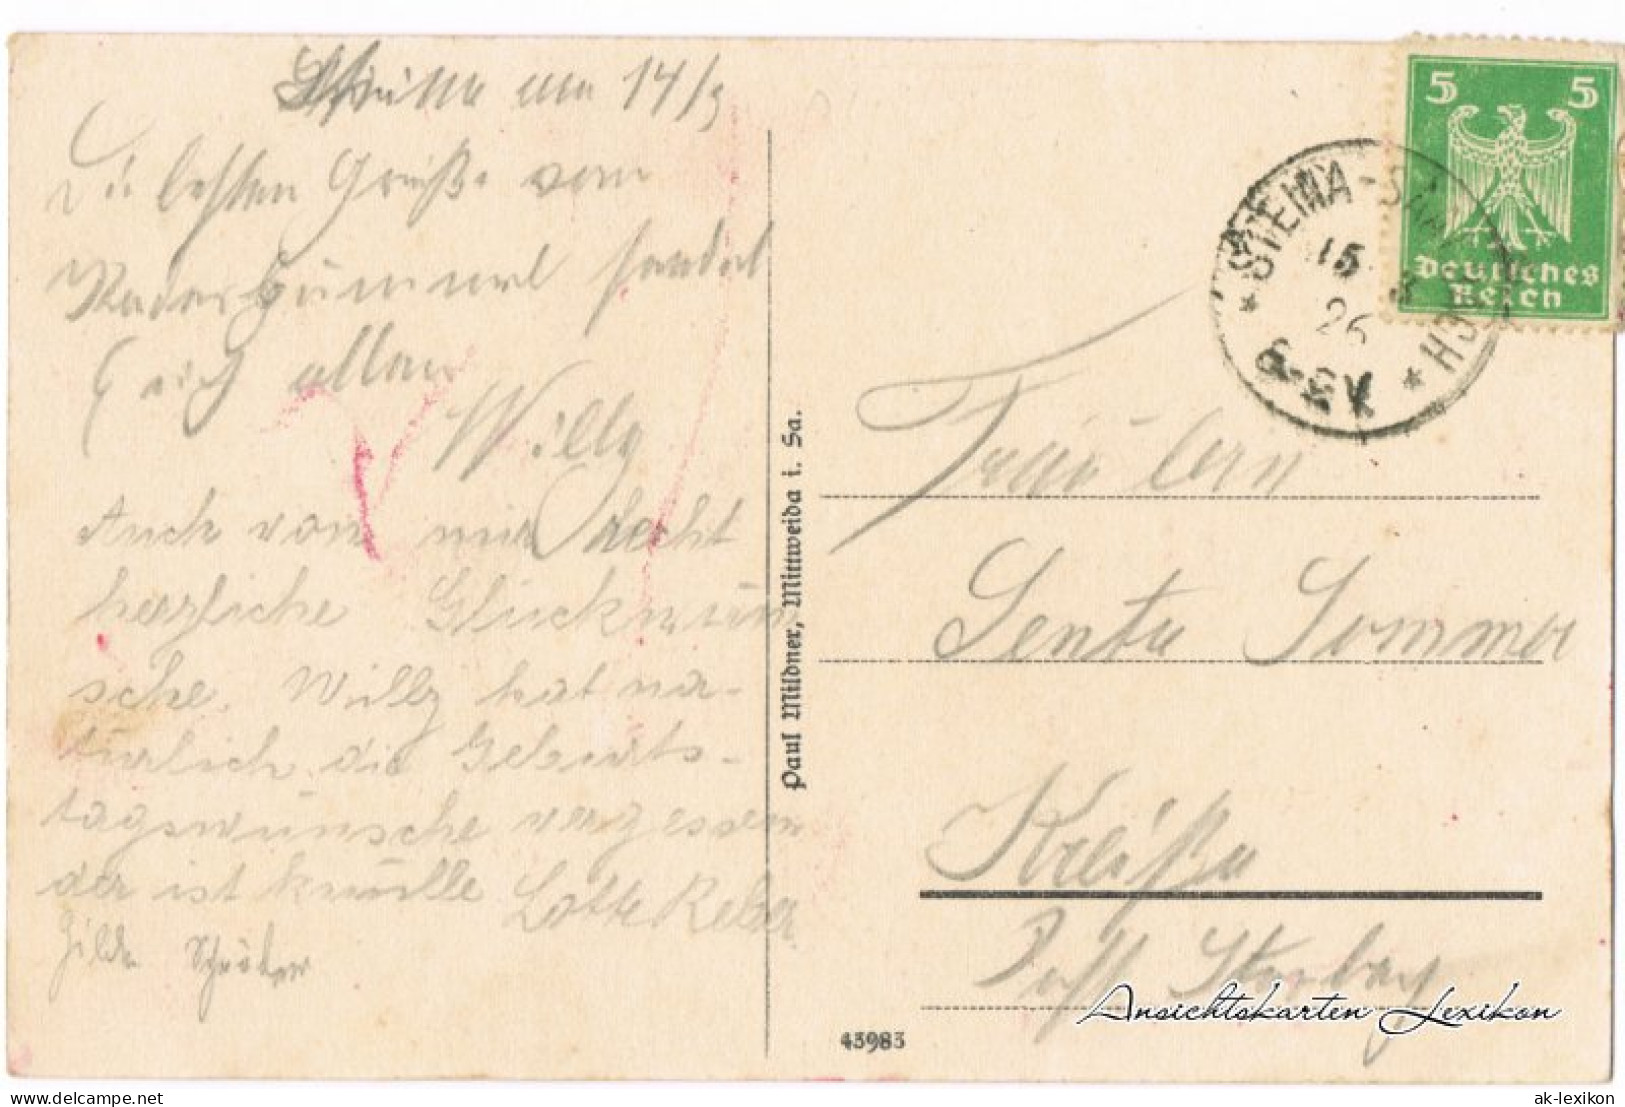 am 14/3
Die besten Grüße vom
sendet
Euch allen
Willy
Auch von mir recht
herzliche Glückwün
sche. Willy hat na-
türlich die Geburts-
tagswünsche vergessen
der ist knülle Lotte Reber
Hilde Schröter
Paul Mildner, Mittweida i. Sa.
43983
5 5
Deutsches
Reich
15 3
26
Fräulein
Senta Sommer
Post
Ansichtskarten Lexikon
www.delcampe.net
ak-lexikon